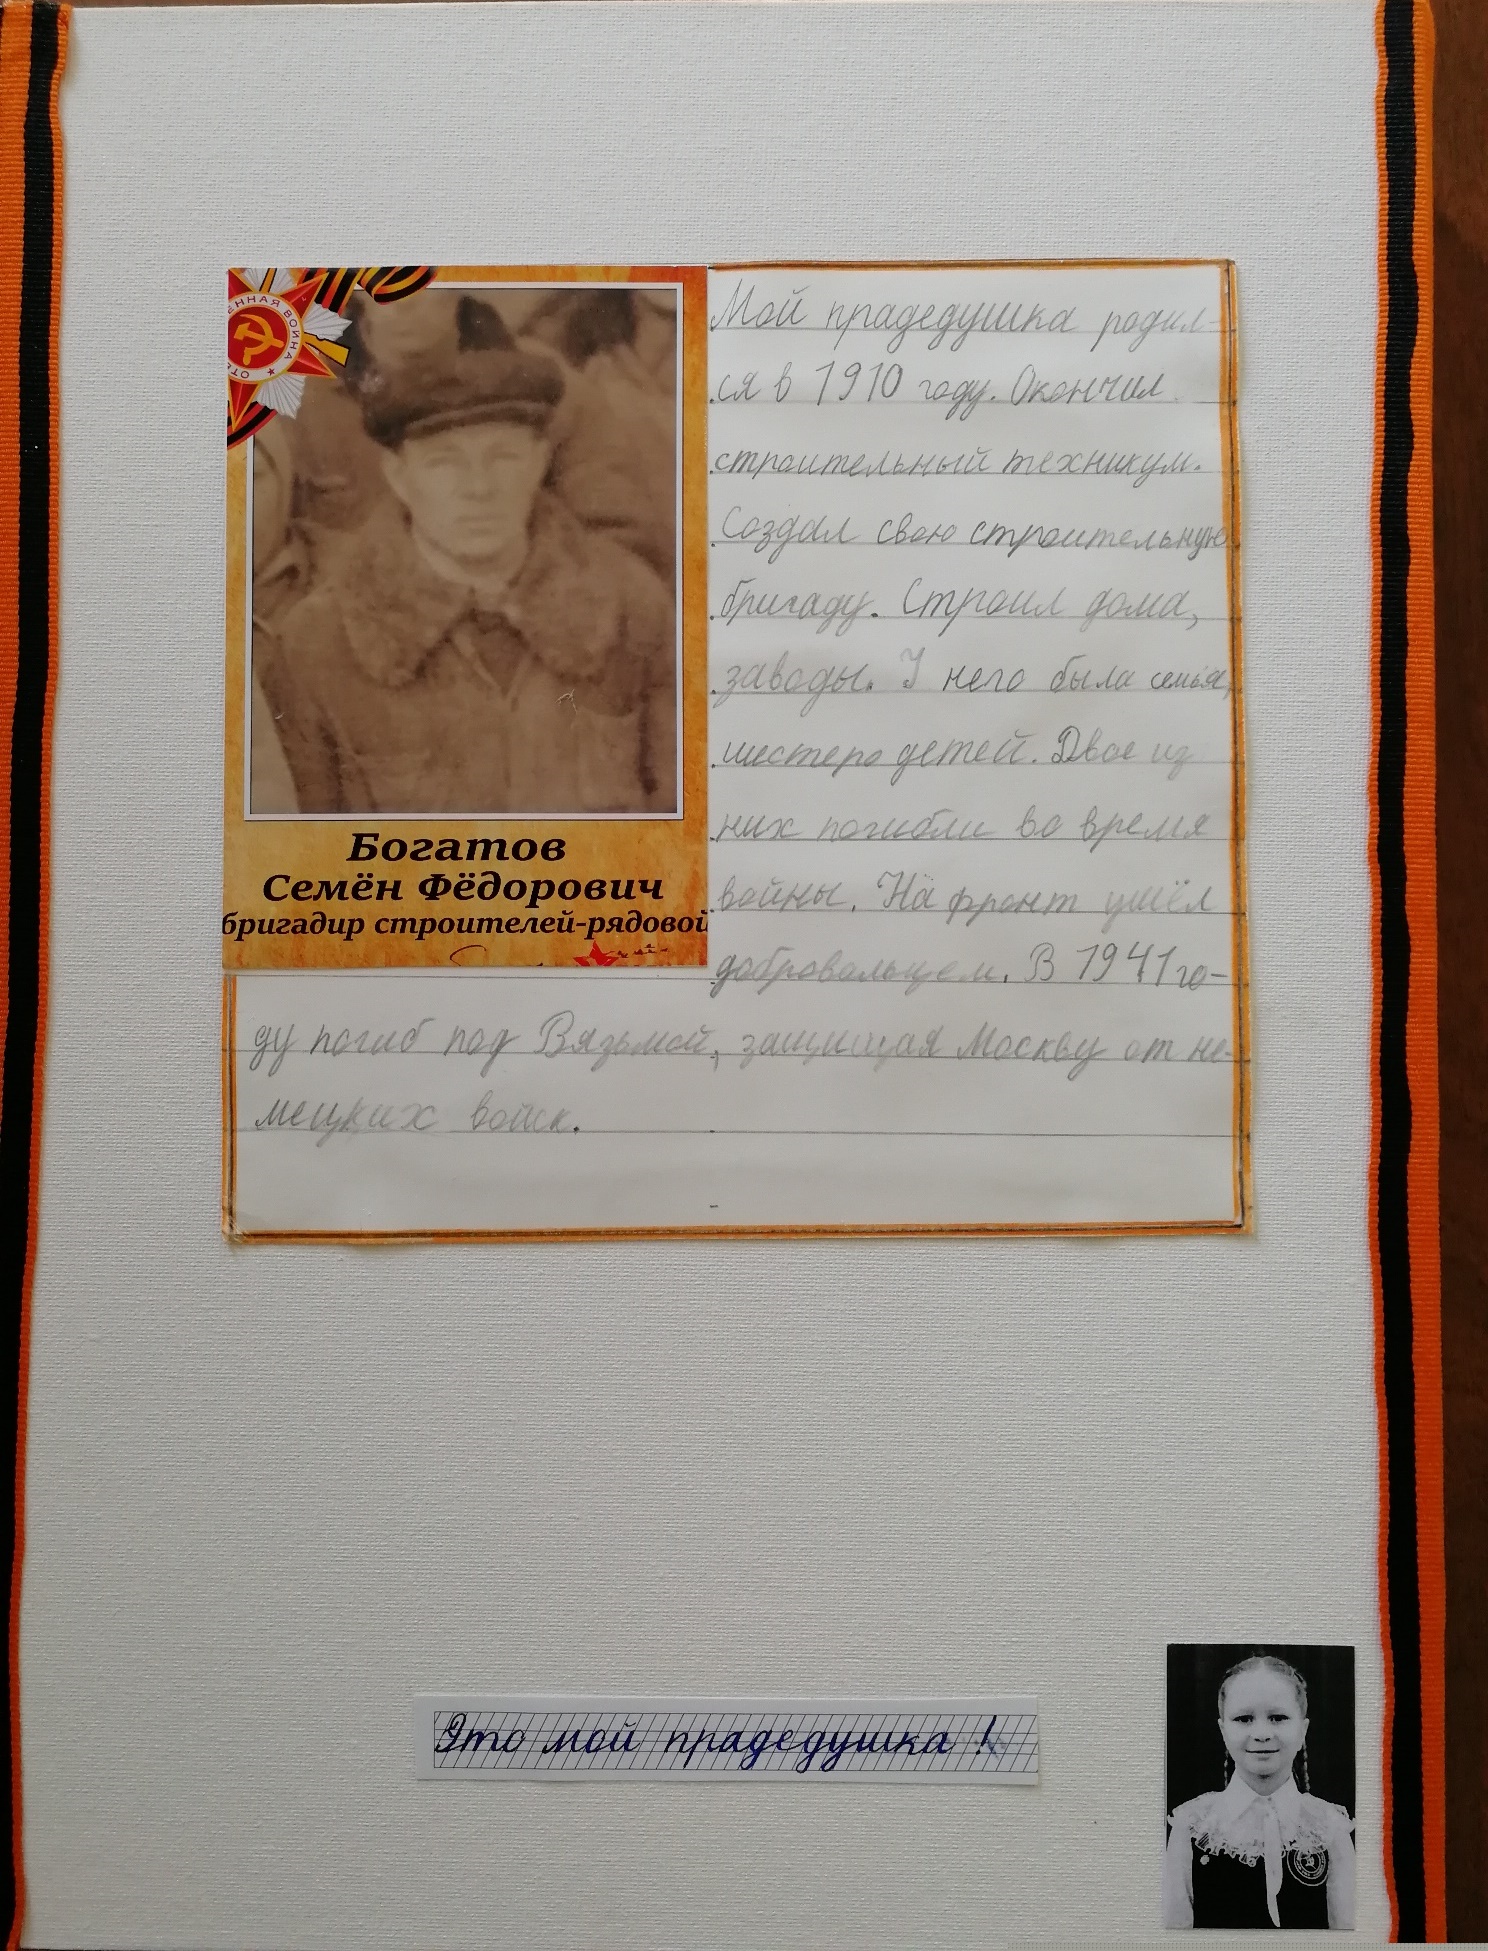 ЕННАЯ ВОЙНА ★ ОТЕ
Богатов
Семён Фёдорович
бригадир строителей-рядовой
Мой прадедушка родил-
ся в 1910 году. Окончил
строительный техникум.
Создал свою строительную
бригаду. Строил дома,
заводы. У него была семья,
шестеро детей. Двое из
них погибли во время
войны. На фронт ушёл
добровольцем. В 1941 го-
ду погиб под Вязьмой, защищая Москву от не-
мецких войск.
Это мой прадедушка!